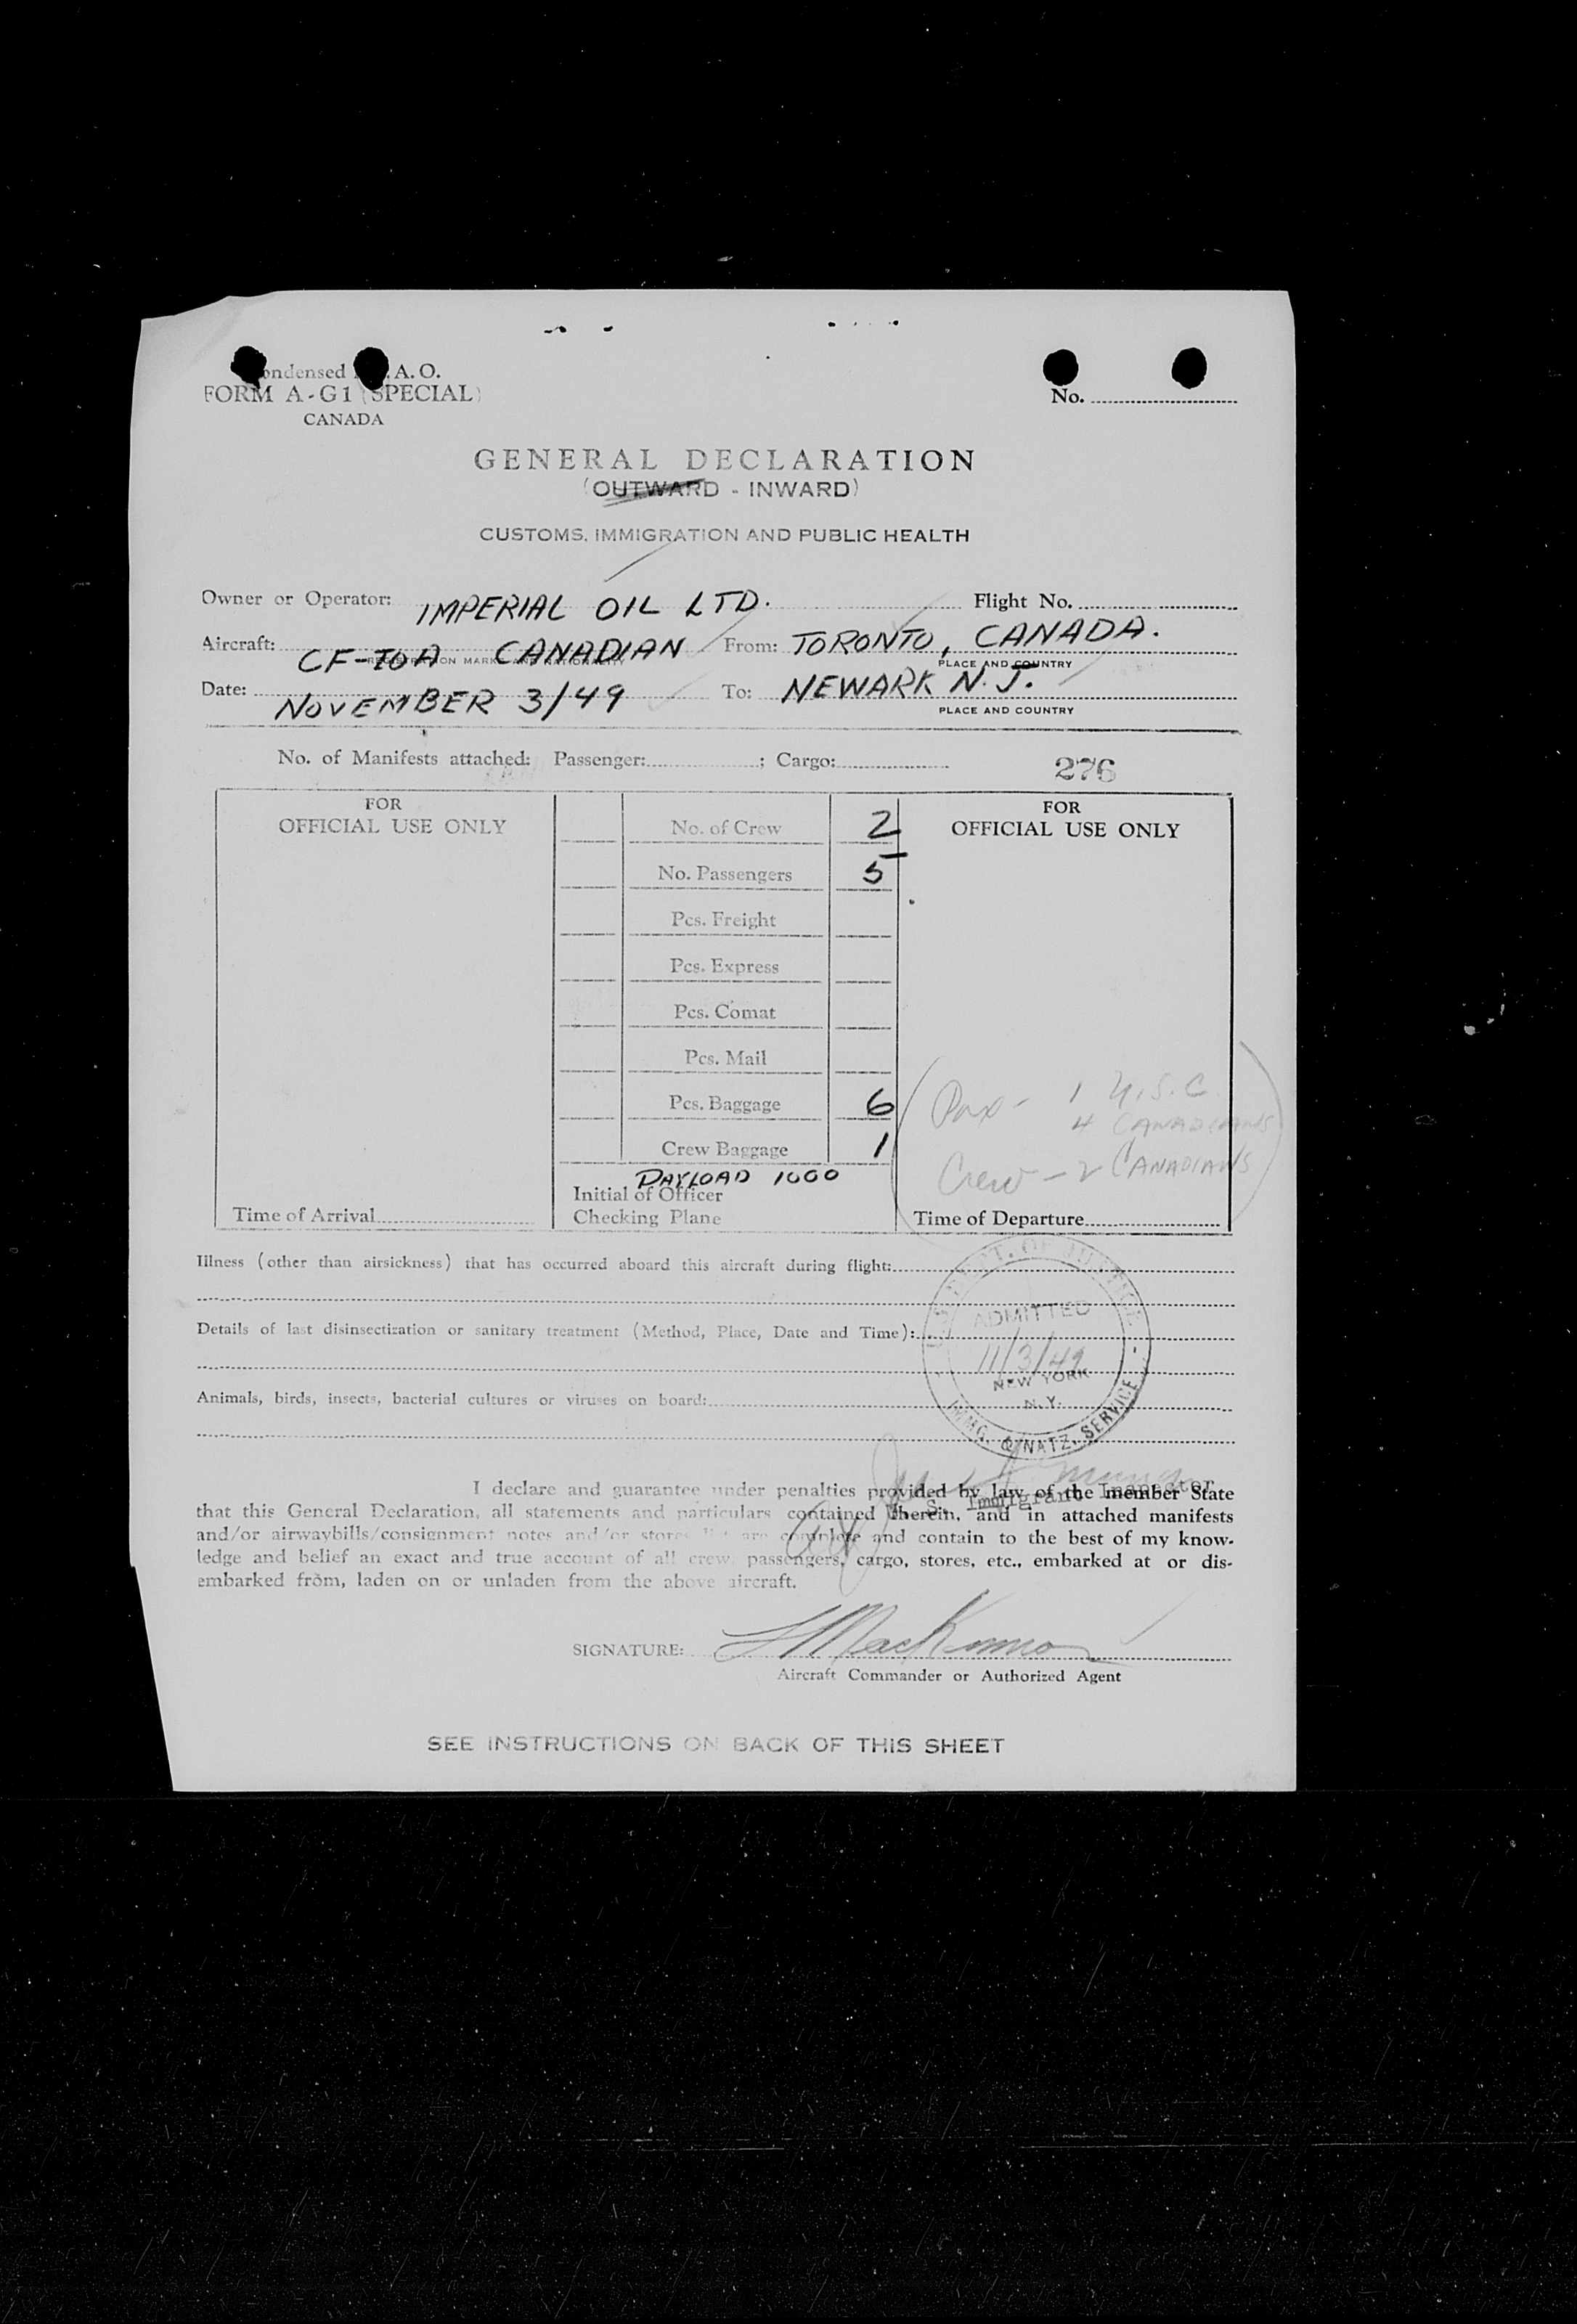 ondensed A. O.
FORM A-G1 (SPECIAL)
CANADA
No.
GENERAL DECLARATION
(OUTWARD - INWARD)
CUSTOMS, IMMIGRATION AND PUBLIC HEALTH
Owner or Operator: IMPERIAL OIL LTD. Flight No.
Aircraft: CF-IOA CANADIAN From: TORONTO, CANADA.
REGISTRATION MARKS AND NATIONALITY PLACE AND COUNTRY
Date: NOVEMBER 3/49 To: NEWARK N.J.
PLACE AND COUNTRY
No. of Manifests attached: Passenger: ; Cargo: 276
FOR
OFFICIAL USE ONLY
No. of Crew 2
No. Passengers 5
Pcs. Freight
Pcs. Express
Pcs. Comat
Pcs. Mail
Pcs. Baggage 6
Crew Baggage 1
PAYLOAD 1000
Initial of Officer
Checking Plane
Time of Arrival
FOR
OFFICIAL USE ONLY
Pax - 1 U.S.C.
4 CANADIANS
Crew - 2 CANADIANS
Time of Departure
Illness (other than airsickness) that has occurred aboard this aircraft during flight:
Details of last disinsectization or sanitary treatment (Method, Place, Date and Time):
Animals, birds, insects, bacterial cultures or viruses on board:
ADMITTED
11/3/49
NEW YORK
N.Y.
IMMG. & NATZ. SERVICE
S. Immigrant Inspector
I declare and guarantee under penalties provided by law of the member State
that this General Declaration, all statements and particulars contained therein, and in attached manifests
and/or airwaybills/consignment notes and/or stores list are complete and contain to the best of my know-
ledge and belief an exact and true account of all crew, passengers, cargo, stores, etc., embarked at or dis-
embarked from, laden on or unladen from the above aircraft.
SIGNATURE: MacKinnon
Aircraft Commander or Authorized Agent
SEE INSTRUCTIONS ON BACK OF THIS SHEET